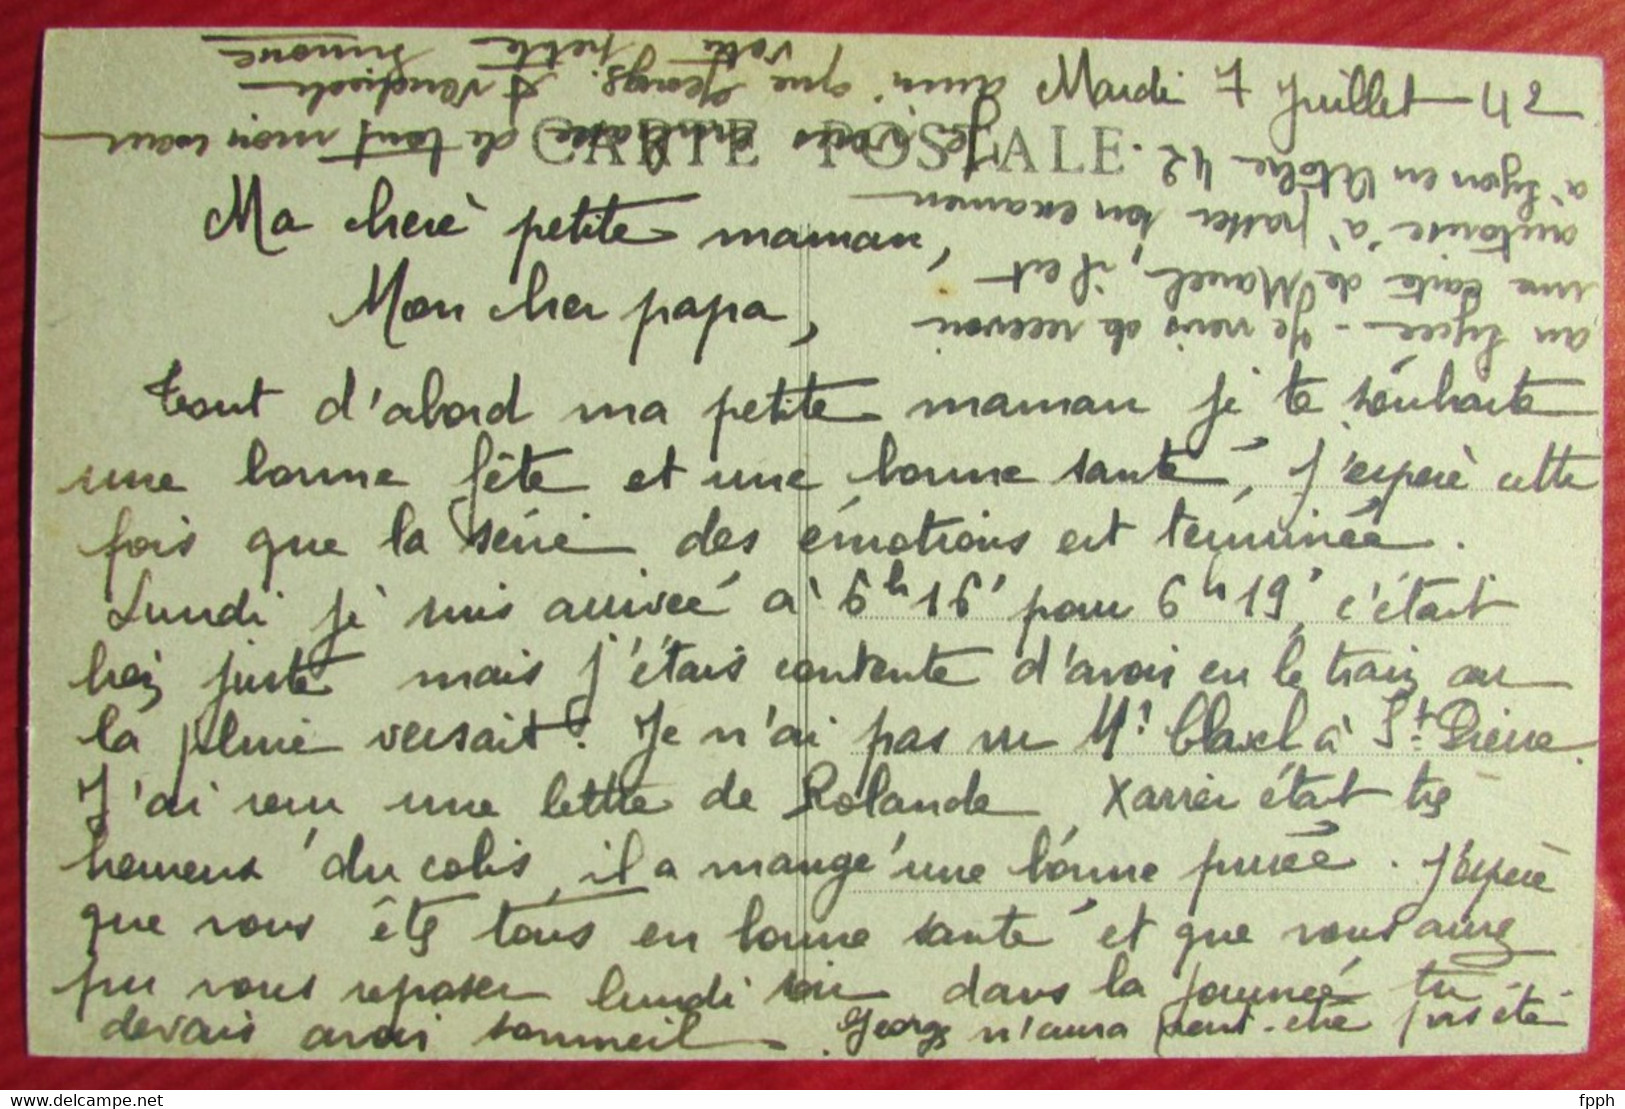 Mardi 7 Juillet 42
CARTE POSTALE
Ma cherè petite maman,
Mon cher papa,
Tout d'abord ma petite maman je te souhaite
une bonne fête et une bonne santé, J'esperè cette
fois que la série des émotions est terminée.
Lundi je suis arriveé à 6h16' pour 6h19', c'était
juste mais j'étais contente d'avoir eu le train car
la pluie versait. Je n'ai pas vu Mr Claxel à St. Pierre.
J'ai reçu une lettre de Rolande Xavier était très
heureux du colis, il a mangé une bonne purée. J'esperè
que vous êtes tous en bonne santé et que vous avez
pu vous reposer lundi soir dans la journeé tu
devais avoir sommeil. Georges n'aura peut-etré pas été
au lycee - Je viens de recevoir
une carte de Marcel, il est
autorisé à passer son examen
à Lyon en Octobre 42.
Je vous embrasse de tout mon cœur
ainsi que Georges. A vendredi
votre petite Simone
fpph